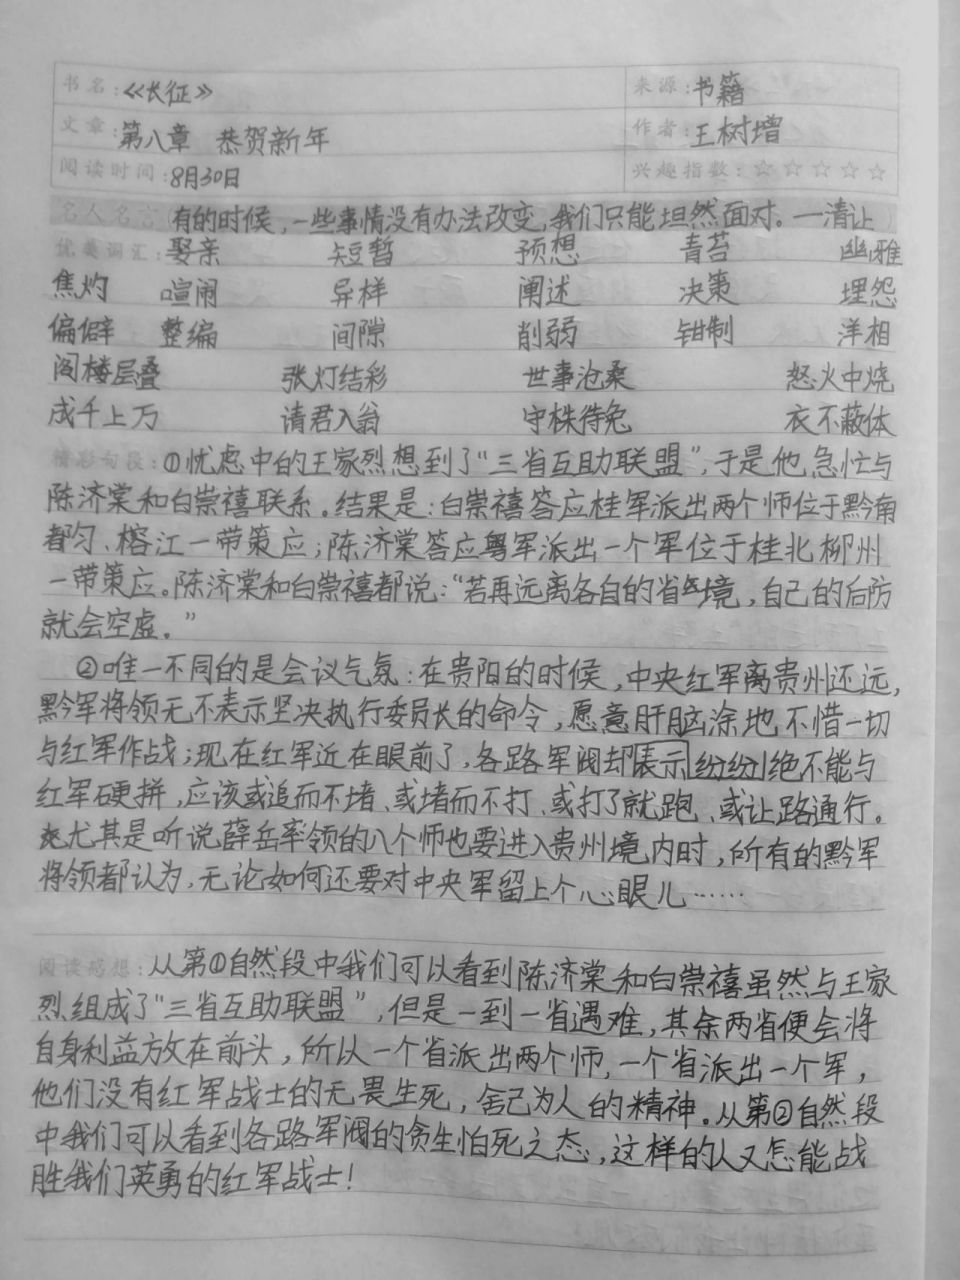 书名:《长征》 来源:书籍
文章:第八章 恭贺新年 作者:王树增
阅读时间:8月30日 兴趣指数:☆☆☆☆☆
名人名言 有的时候,一些事情没有办法改变,我们只能坦然面对。—清让
优美词汇:娶亲 短暂 预想 青苔 幽雅
焦灼 喧闹 异样 阐述 决策 埋怨
偏僻 整编 间隙 削弱 钳制 洋相
阁楼层叠 张灯结彩 世事沧桑 怒火中烧
成千上万 请君入翁 守株待兔 衣不蔽体
精彩句段:①忧虑中的王家烈想到了“三省互助联盟”,于是他急忙与
陈济棠和白崇禧联系。结果是:白崇禧答应桂军派出两个师位于黔角
都匀、榕江一带策应;陈济棠答应粤军派出一个军位于桂北柳州
一带策应。陈济棠和白崇禧都说:“若再远离各自的省境,自己的后防
就会空虚。”
②唯一不同的是会议气氛:在贵阳的时候,中央红军离贵州还远,
黔军将领无不表示坚决执行委员长的命令,愿意肝脑涂地不惜一切
与红军作战;现在红军近在眼前了,各路军阀却表示纷纷绝不能与
红军硬拼,应该或追而不堵、或堵而不打、或打了就跑、或让路通行。
尤其是听说薛岳率领的八个师也要进入贵州境内时,所有的黔军
将领都认为,无论如何还要对中央军留上个心眼儿……
阅读感想:从第①自然段中我们可以看到陈济棠和白崇禧虽然与王家
烈组成了“三省互助联盟”,但是一到一省遇难,其余两省便会将
自身利益放在前头,所以一个省派出两个师,一个省派出一个军,
他们没有红军战士的无畏生死,舍己为人的精神。从第②自然段
中我们可以看到各路军阀的贪生怕死之态,这样的人又怎能战
胜我们英勇的红军战士!